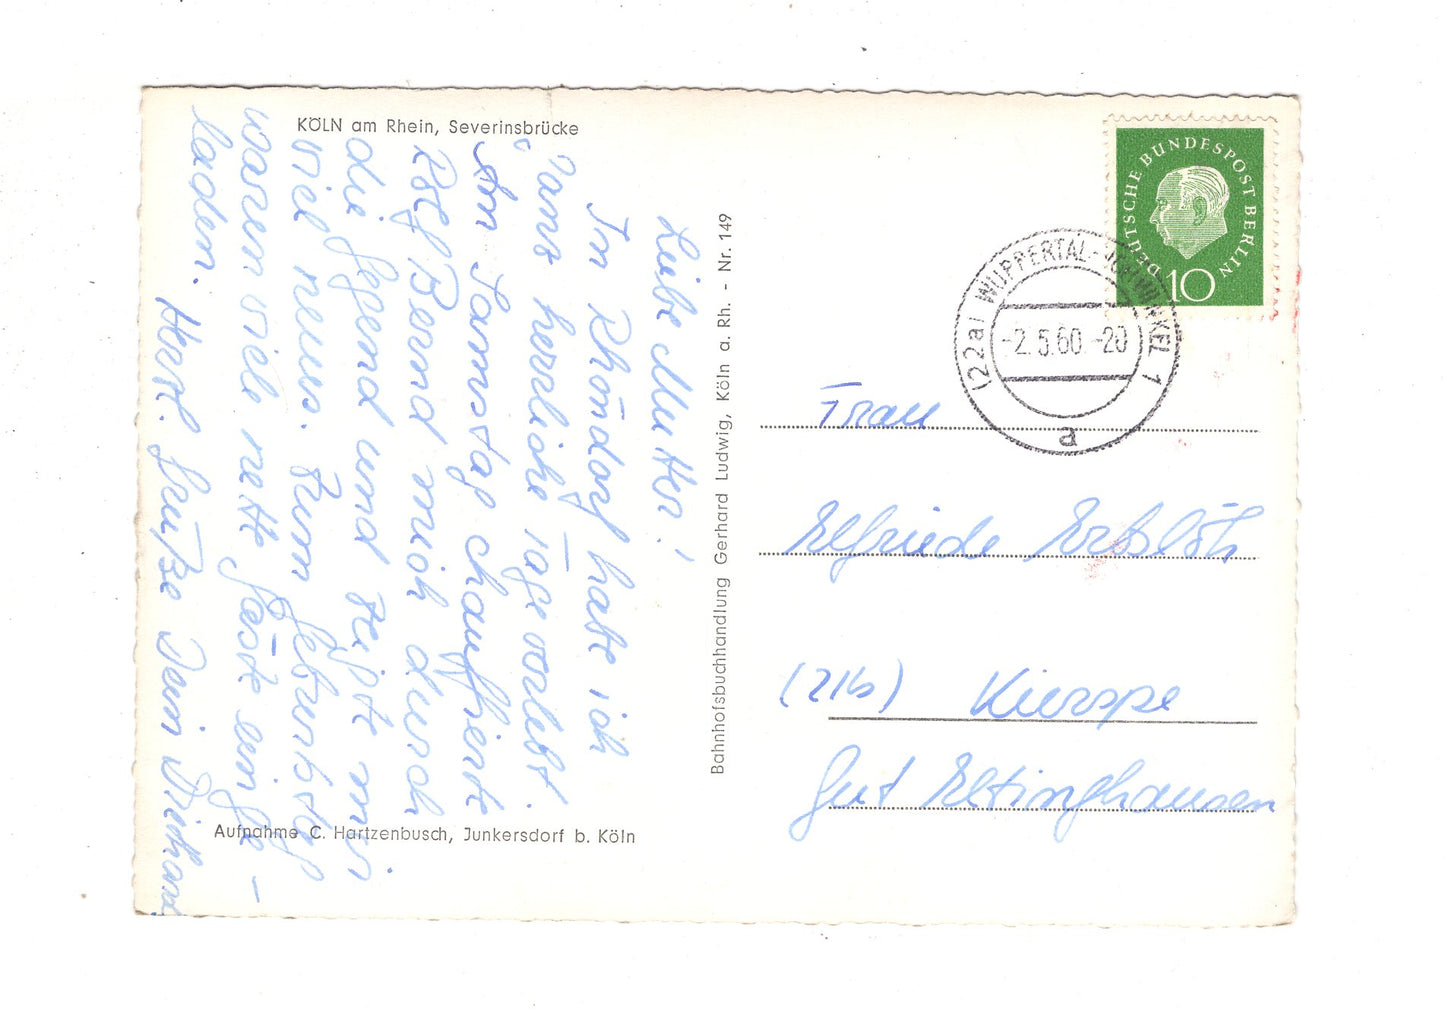 KÖLN am Rhein, Severinsbrücke
Liebe Mutter!
In Rhöndorf habe ich
ganz herrliche Tage verlebt.
Am Samstag chauffierte
Rolf Bernd mich durch
die Gegend und zeigte mir
viel neues. Zum Geburtstag
waren viele nette Gäste einge-
laden.
Herzl. Grüße Dein Richard
Aufnahme C. Hartzenbusch, Junkersdorf b. Köln
Bahnhofsbuchhandlung Gerhard Ludwig, Köln a. Rh. - Nr. 149
DEUTSCHE BUNDESPOST BERLIN
10
(22a) WUPPERTAL-VOHWINKEL 1
-2.5.60.-20
a
Frau
Elfriede Erbslöh
(21b) Kierspe
Gut Eltinghausen